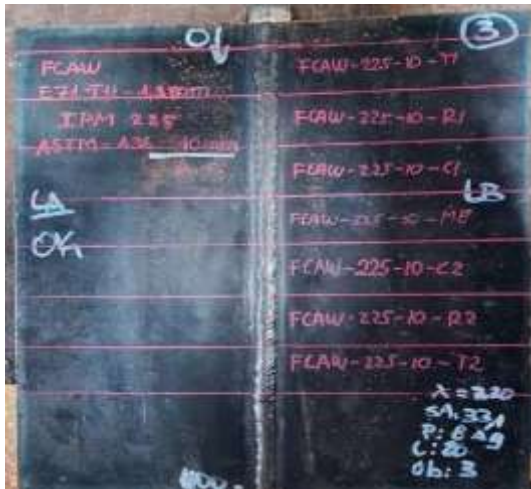 O↓
3
FCAW
IPM 225
ASTM-A36 10mm
LA
OK
FCAW-225-10-T1
FCAW-225-10-R1
FCAW-225-10-C1
LB
FCAW-225-10-ME
FCAW-225-10-C2
FCAW-225-10-R2
FCAW-225-10-T2
L:20
Ob:3